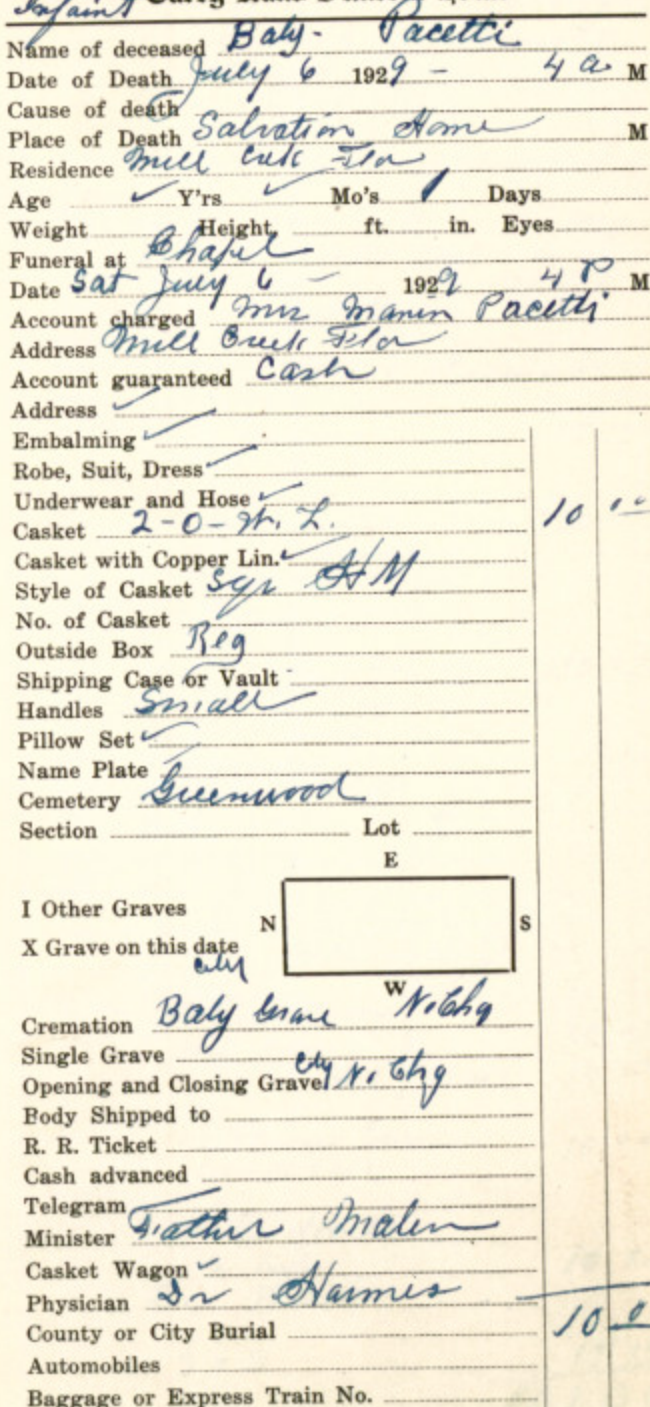 Infant
Name of deceased Baby - Pacetti
Date of Death July 6 1929 - 4 a M
Cause of death
Place of Death Salvation Home M
Residence Mill Creek Fla
Age ✓ Y'rs ✓ Mo's 1 Days
Weight Height ft. in. Eyes
Funeral at Chapel
Date Sat July 6 - 1929 4 P M
Account charged Mrs Pacetti
Address Mill Creek Fla
Account guaranteed Cash
Address ✓
Embalming ✓
Robe, Suit, Dress ✓
Underwear and Hose ✓
Casket 2-0- W. L. 10 00
Casket with Copper Lin. ✓
Style of Casket Sqr
No. of Casket
Outside Box Reg
Shipping Case or Vault -
Handles Small
Pillow Set ✓
Name Plate
Cemetery Greenwood
Section Lot
E
I Other Graves
N S
X Grave on this date
W
city
Cremation Baby Grave No Chg
Single Grave
Opening and Closing Grave city No Chg
Body Shipped to
R. R. Ticket
Cash advanced
Telegram
Minister Father
Casket Wagon ✓
Physician Dr
County or City Burial 10 0
Automobiles
Baggage or Express Train No.